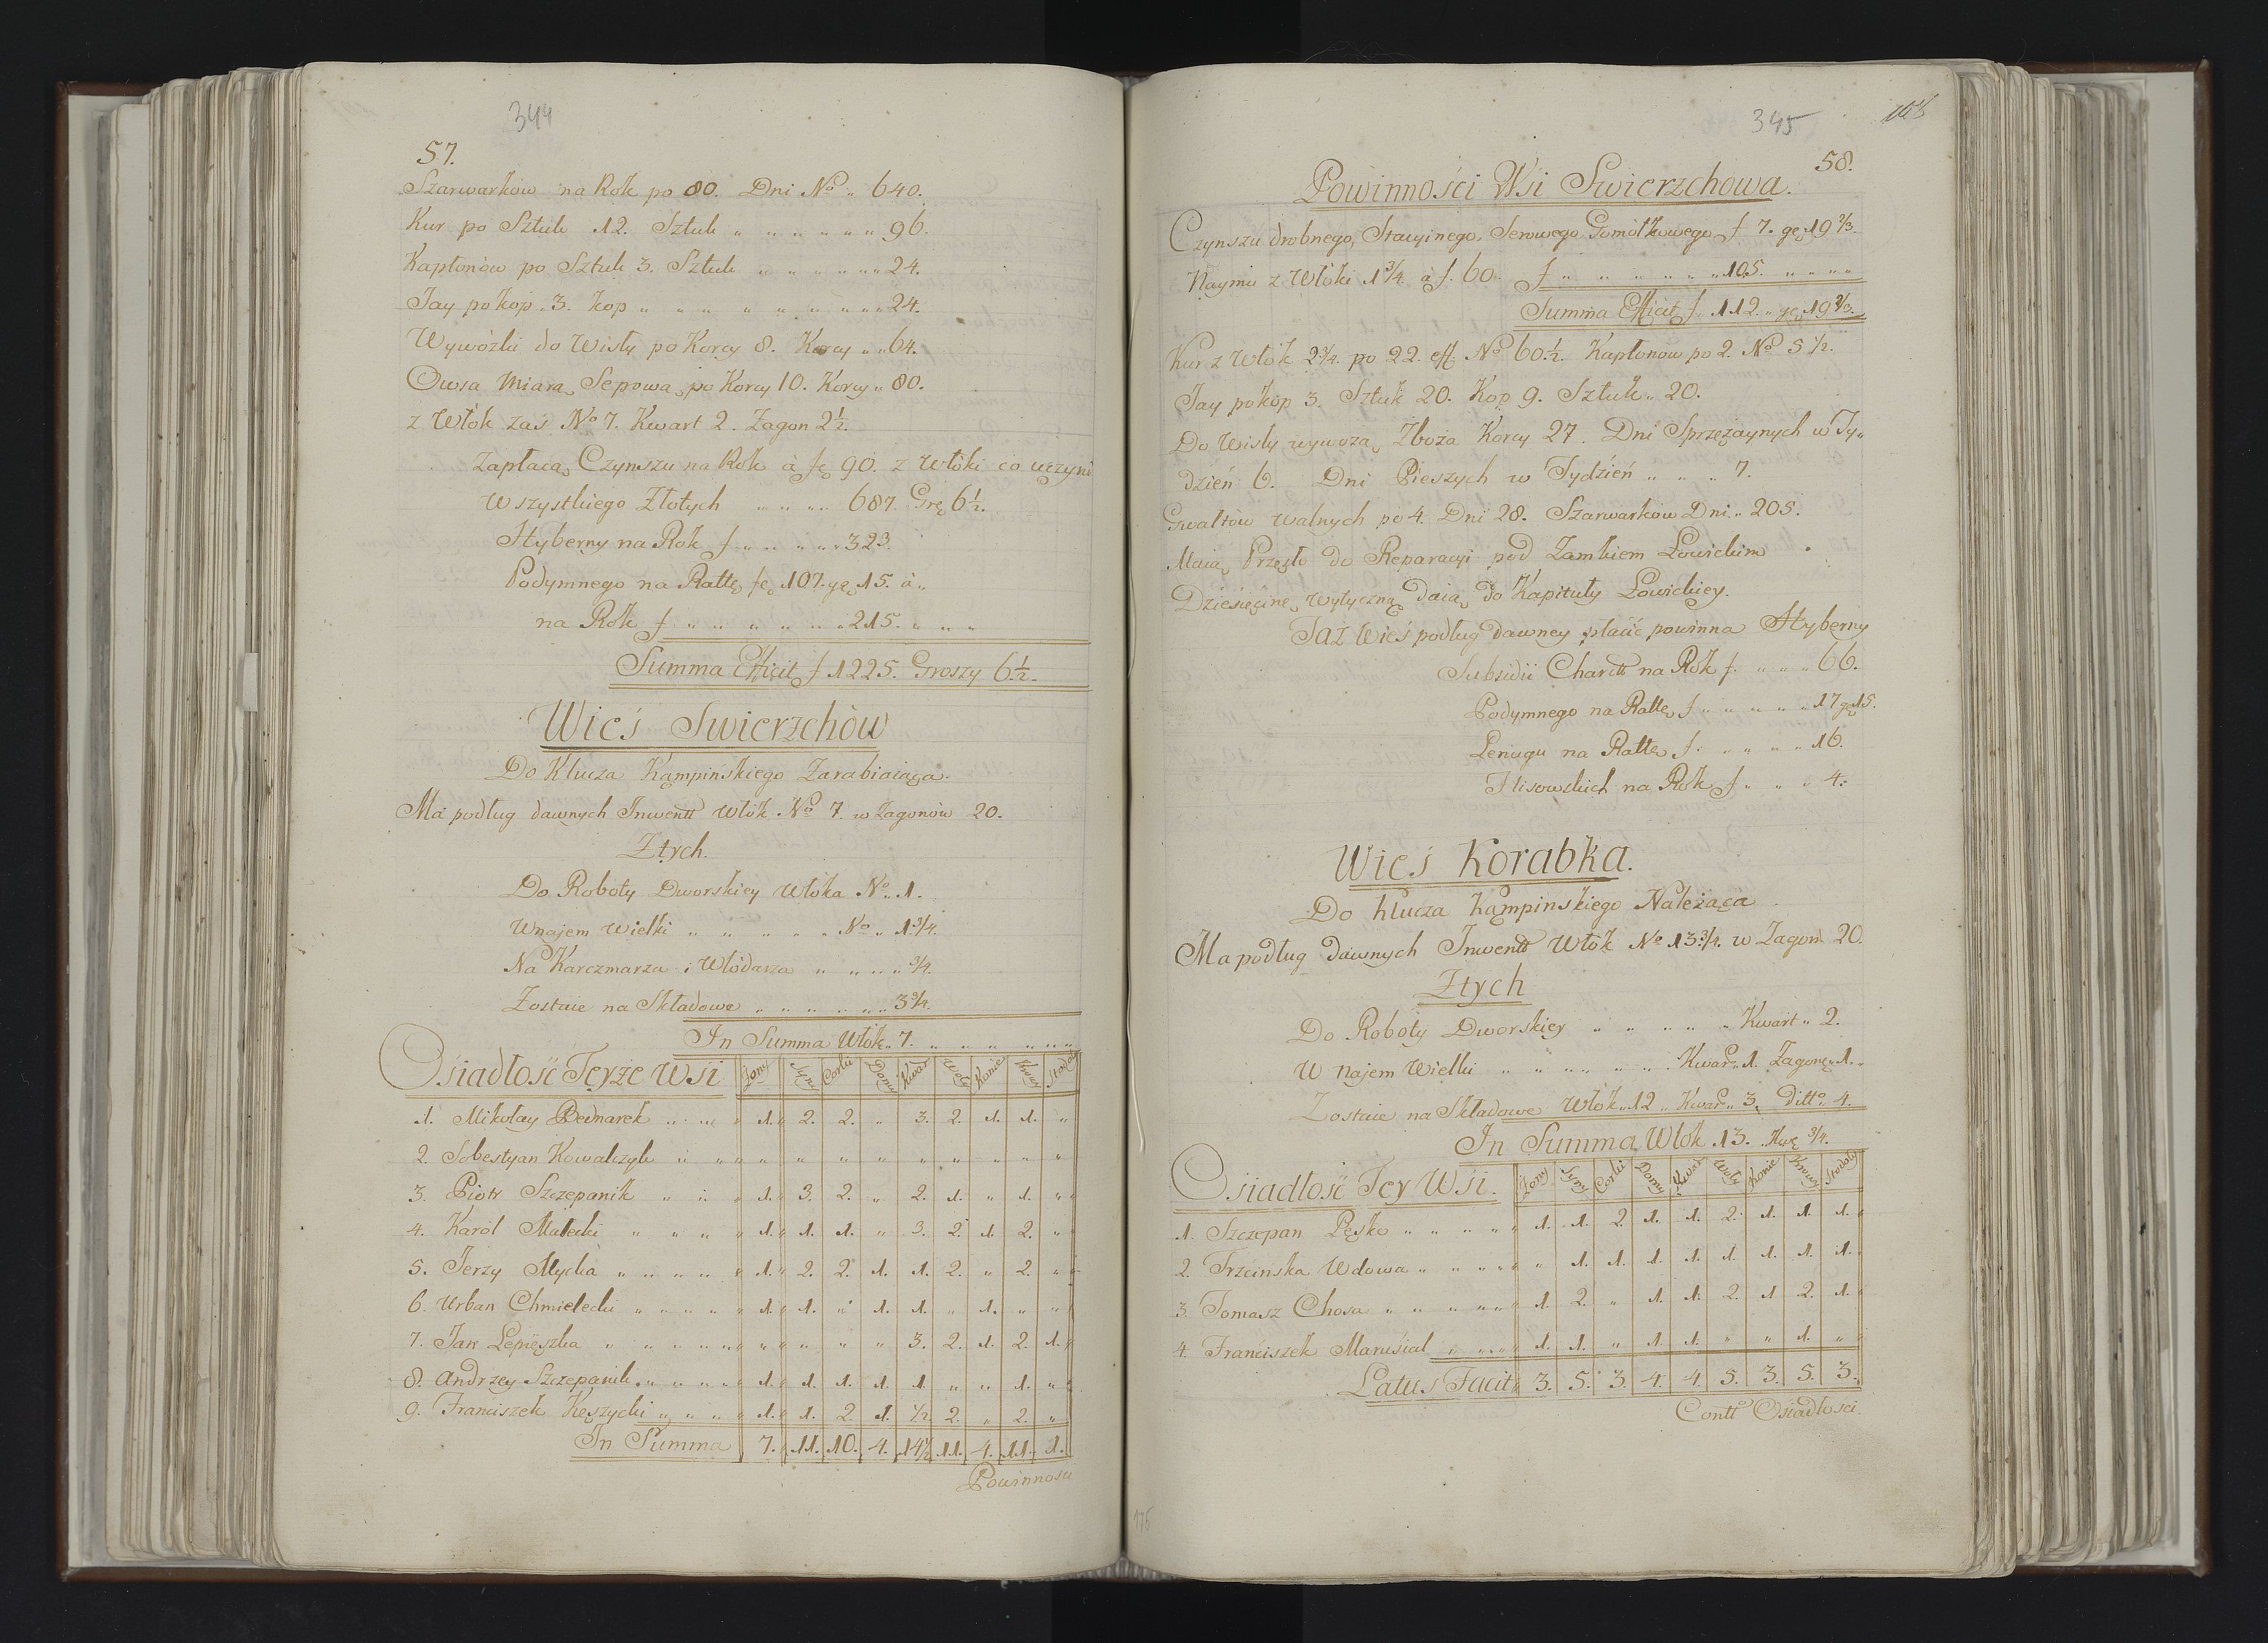 344
57.
Szarwarków na Rok po 80. Dni No „ 640.
Kur po Sztuk 12. Sztuk „ „ „ „ „ „ 96.
Kapłonów po Sztuk 3. Sztuk „ „ „ „ „ „ 24.
Jay po kop „ 3. kop „ „ „ „ „ „ „ „ 24.
Wywózki do Wisły po Korcy 8. Korcy „ „ 64.
Owsa Miarą Sepową po Korcy 10. Korcy „ 80.
z Włok zaś No 7. Kwart 2. Zagon 2 1/2.
Zapłacą Czynszu na Rok à fę 90. z Włóki co uczyni
Wszystkiego Złotych „ „ „ „ 687. Grę 6 1/2.
Hyberny na Rok f „ „ „ „ „ 323.
Podymnego na Rattę fę 107. gę 15. à „
na Rok f „ „ „ „ „ „ „ 215. „ „ „
Summa Efficit f 1225. Groszy 6 1/2.
Wieś Swierzchów
Do Klucza Kampińskiego Zarabiaiąca.
Ma podług dawnych Inwentt Włók No 7. w Zagonów 20.
Z tych.
Do Roboty Dworskiey Włóka No „ 1.
W najem Wielki „ „ „ „ „ No „ 1 3/4.
Na Karczmarza i Włódarza „ „ „ „ 3/4.
Zostaie na Składowe „ „ „ „ „ „ 3 3/4.
In Summa Włók „ 7. „ „ „ „ „ „
Osiadłość Teyże Wsi Żony Syny Corki Domy Kwart Woły Konie Krowy Stodoły
1. Mikołay Bednarek „ „ „ 1. „ 2. 2. „ 3. 2. 1. 1. „
2. Sobestyan Kowalczyk „ „ „ „ „ „ „ „ „ „ „ „
3. Piotr Szczepanik „ „ „ 1. „ 3. 2. „ 2. 1. „ 1. „
4. Karól Małecki „ „ „ „ 1. „ 1. 1. „ 3. 2. 1. 2. „
5. Jerzy Mycka „ „ „ „ 1. „ 2. 2. 1. 1. 2. „ 2. „
6. Urban Chmielecki „ „ „ „ 1. „ 1. „ 1. 1. „ 1. „ „
7. Jan Lepieszka „ „ „ „ „ „ „ „ „ 3. 2. 1. 2. 1.
8. Andrzey Szczepanik „ „ „ „ 1. „ 1. 1. 1. 1. „ „ 1. „
9. Franciszek Kęszycki „ „ „ „ 1. „ 1. 2. 1. 1/2 2. „ 2. „
In Summa 7. 11. 10. 4. 14 1/2 11. 4. 11. 1.
Powinnośc
345
58.
Powinności Wsi Swierzchowa.
Czynszu drobnego, Stacyinego, Serowego Gomółkowego f 7. gę 19 2/3.
Naymu z Włóki 1 3/4 à f. 60. f „ „ „ „ „ „ 105. „ „ „ „
Summa Efficit f. 112. „ gę 19 2/3.
Kur z Włók 2 3/4. po 22. eff. No 60 1/2. Kapłonów po 2. No 5 1/2.
Jay po kóp 3. Sztuk 20. Kop 9. Sztuk „ 20.
Do Wisły wywożą Zboża Korcy 27. Dni Sprzężaynych w Ty„
dzień 6. Dni Pieszych w Tydzień „ „ „ 7.
Gwałtów walnych po 4. Dni 28. Szarwarków Dni „ 205.
Maią Przęsło do Reparacyi pod Zamkiem Łowickim
Dziesięcinę Wytyczną daią do Kapituły Łowickiey.
Taż Wieś podług dawney płacić powinna Hyberny
Subsidii Charitt na Rok f. „ „ „ 66.
Podymnego na Rattę f „ „ „ „ „ 17 gę 15.
Lenugu na Rattę f. „ „ „ „ 16.
Flisowskich na Rok f „ „ „ 4.
Wieś Korabka.
Do klucza Kąmpinskiego Nalezącą
Ma podług dawnych Inwentt Włók No 13 3/4. w Zagon 20.
Z tych
Do Roboty Dworskiey „ „ „ „ „ Kwart „ 2.
W Najem Wielki „ „ „ „ „ „ Kwar „ 1. Zagonę „ 1. „
Zostaie na Składowe Włók „ 12 „ Kwar „ 3. Ditto „ 4.
In Summa Włok 13. Kwę 3/4.
Osiadłość Tey Wsi. Żony Syny Corki Domy Kwart Woły Konie Krowy Stodoły
1. Szczepan Pęsko „ „ „ „ „ 1. 1. 2. 1. 1. 2. 1. 1. 1.
2. Trzcinska Wdowa „ „ „ „ „ 1. 1. 1. 1. 1. 1. 1. 1.
3. Tomasz Chosa „ „ „ „ „ 1. 2. „ 1. 1. 2. 1 2. 1.
4. Franciszek Marusiał „ „ „ „ 1. 1. „ 1. 1. „ „ 1. „
Latus Facit 3. 5. 3. 4. 4. 5. 3. 5. 3.
Contt Osiadłosci
176